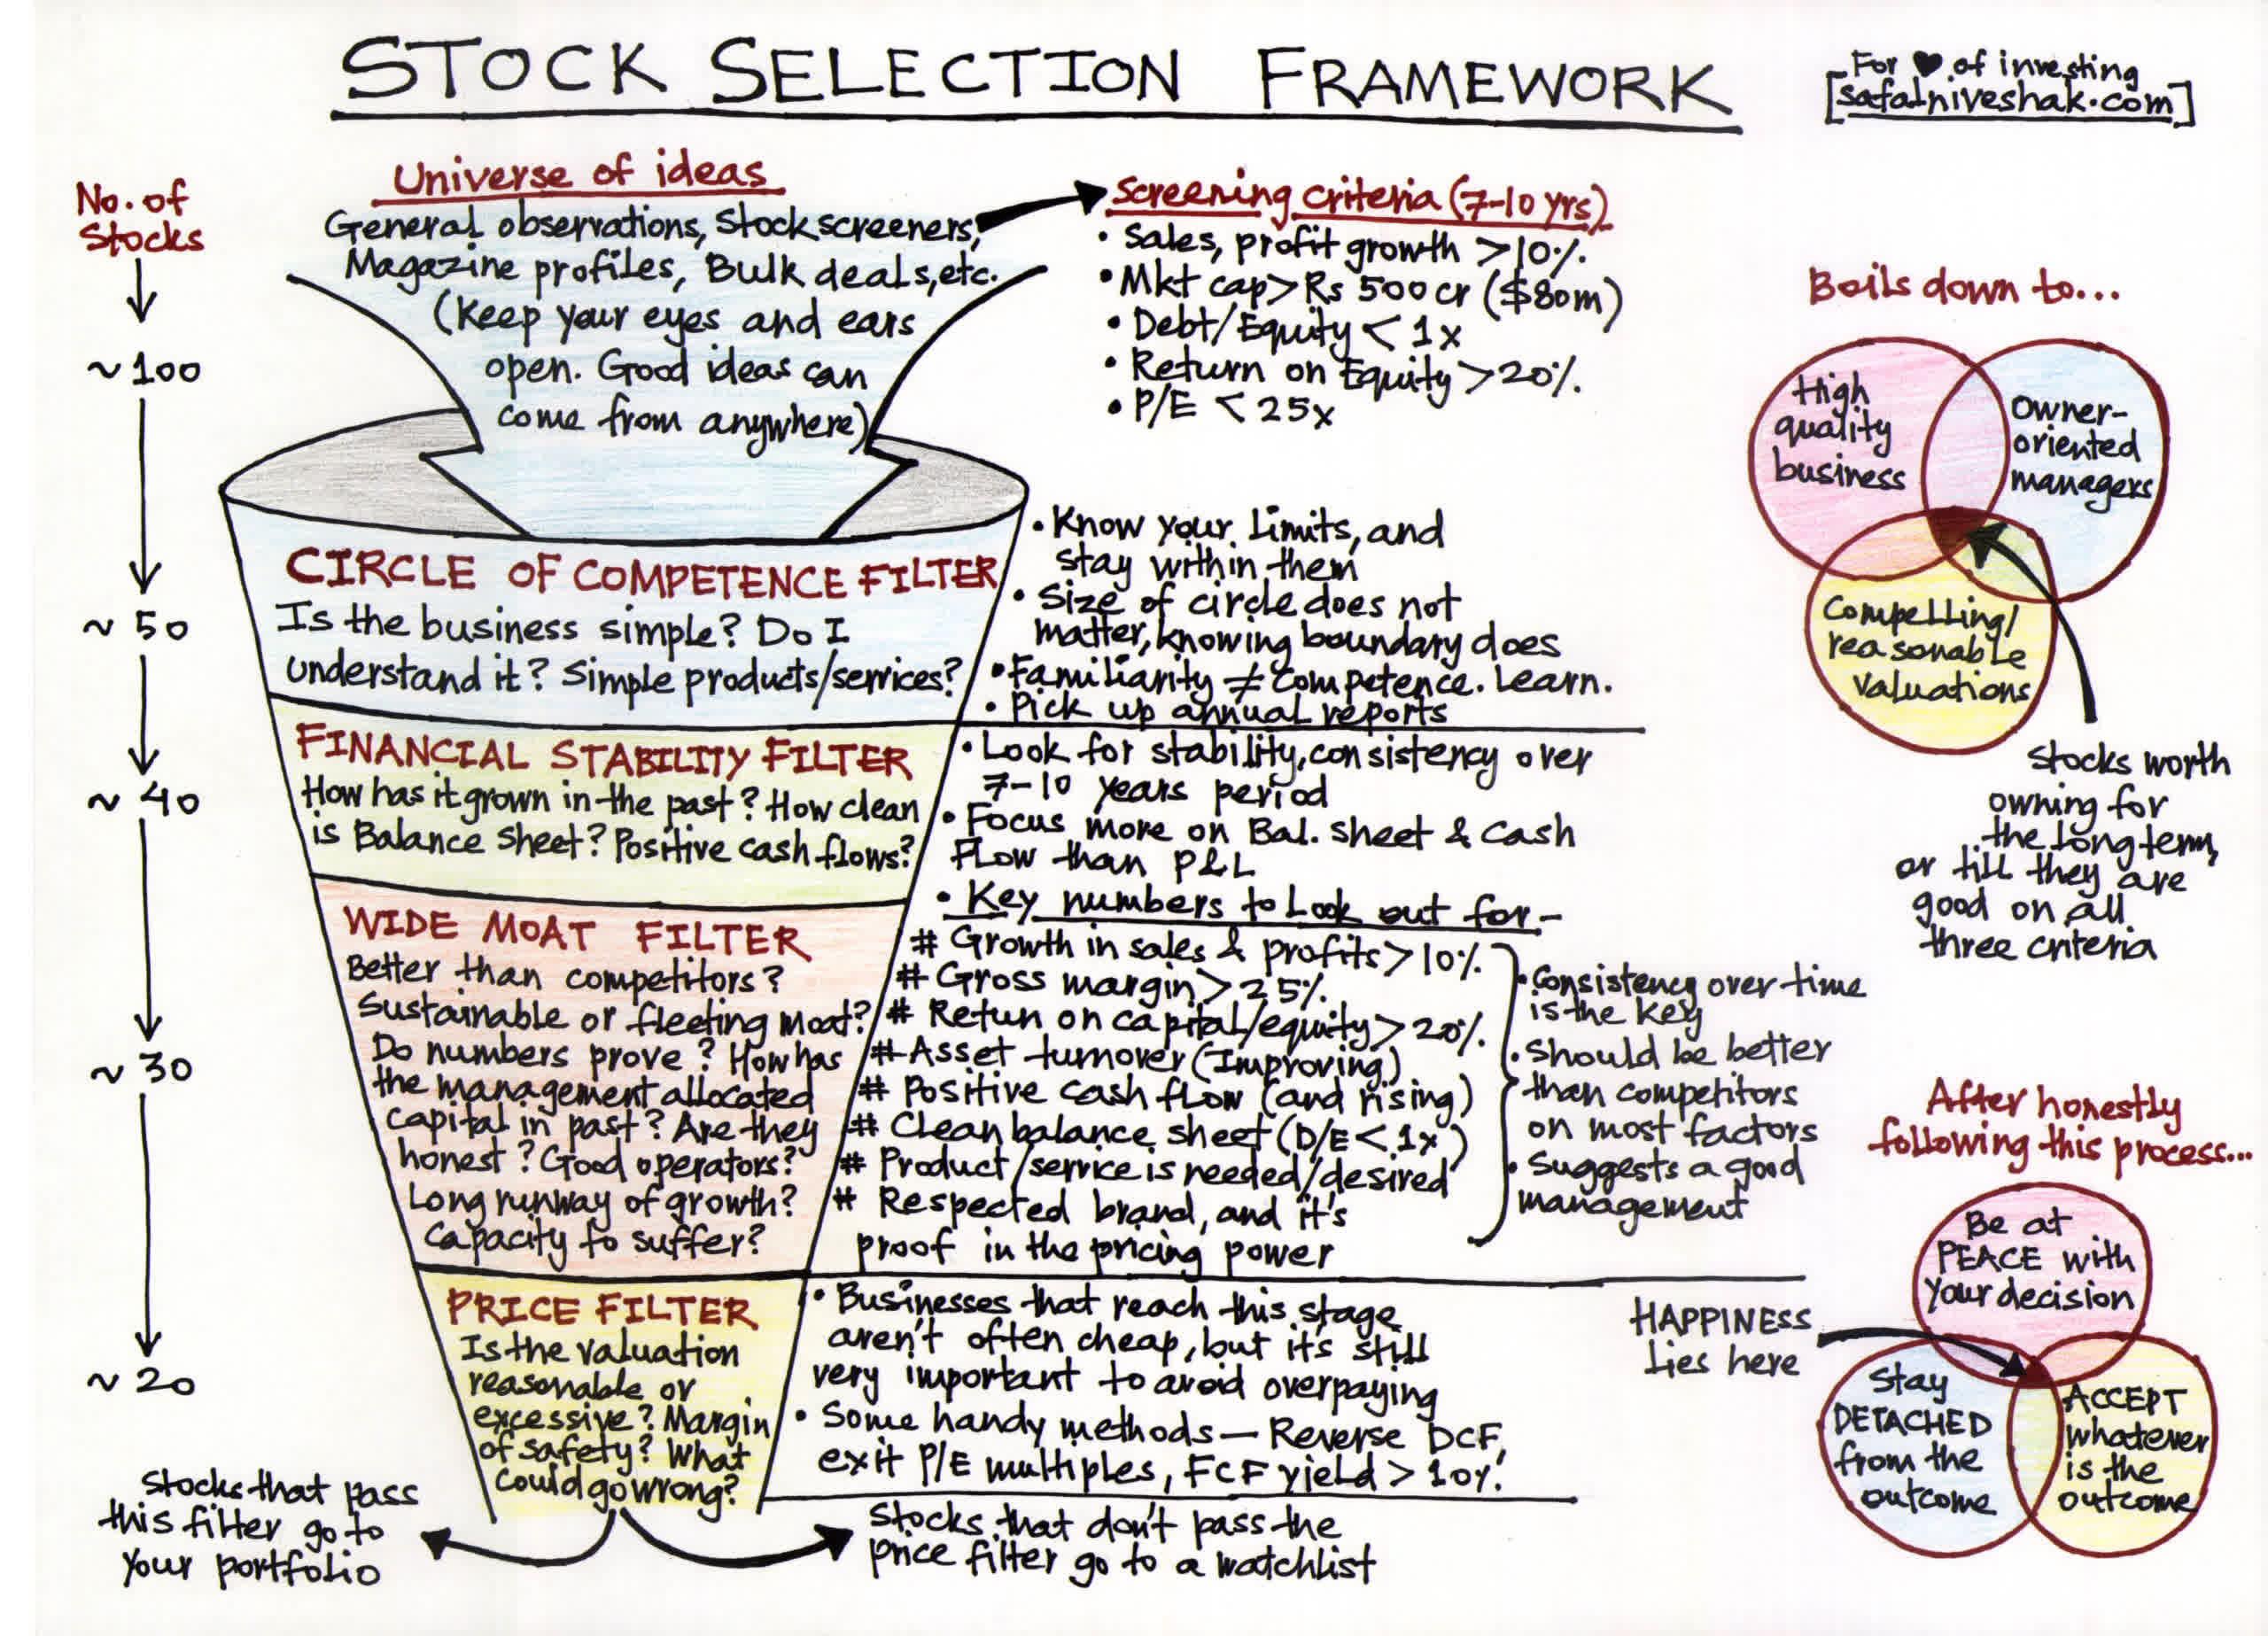 STOCK SELECTION FRAMEWORK
For ♥ of investing
[safalniveshak.com]
No. of
Stocks
~100
~ 50
~ 40
~ 30
~ 20
Universe of ideas
General observations, Stock screeners,
Magazine profiles, Bulk deals, etc.
(Keep your eyes and ears
open. Good ideas can
come from anywhere)
Screening criteria (7-10 yrs)
• Sales, profit growth >10%.
• Mkt cap> Rs 500 cr ($80m)
• Debt/Equity < 1x
• Return on Equity >20%.
• P/E < 25x
CIRCLE OF COMPETENCE FILTER
Is the business simple? Do I
understand it? Simple products/services?
• Know your limits, and
stay within them
• Size of circle does not
matter, knowing boundary does
• Familiarity ≠ Competence. Learn.
• Pick up annual reports
FINANCIAL STABILITY FILTER
How has it grown in the past? How clean
is Balance Sheet? Positive cash flows?
• Look for stability, consistency over
7-10 years period
• Focus more on Bal. sheet & Cash
Flow than P&L
WIDE MOAT FILTER
Better than competitors?
Sustainable or fleeting moat?
Do numbers prove? How has
the management allocated
capital in past? Are they
honest? Good operators?
Long runway of growth?
Capacity to suffer?
• Key numbers to look out for -
# Growth in sales & profits >10%.
# Gross margin > 25%.
# Retun on capital/equity > 20%.
# Asset turnover (Improving)
# Positive cash flow (and rising)
# Clean balance sheet (D/E < 1x)
# Product/service is needed/desired
# Respected brand, and it's
proof in the pricing power
• Consistency over time
is the key
• Should be better
than competitors
on most factors
• Suggests a good
management
PRICE FILTER
Is the valuation
reasonable or
excessive? Margin
of safety? What
could go wrong?
• Businesses that reach this stage
aren't often cheap, but it's still
very important to avoid overpaying
• Some handy methods — Reverse DCF,
exit P/E multiples, FCF yield > 10%.
Stocks that pass
this filter go to
your portfolio
Stocks that don't pass the
price filter go to a watchlist
Boils down to...
High
quality
business
Owner-
oriented
managers
Compelling/
reasonable
valuations
Stocks worth
owning for
the long term,
or till they are
good on all
three criteria
After honestly
following this process...
Be at
PEACE with
your decision
HAPPINESS
lies here
Stay
DETACHED
from the
outcome
ACCEPT
whatever
is the
outcome